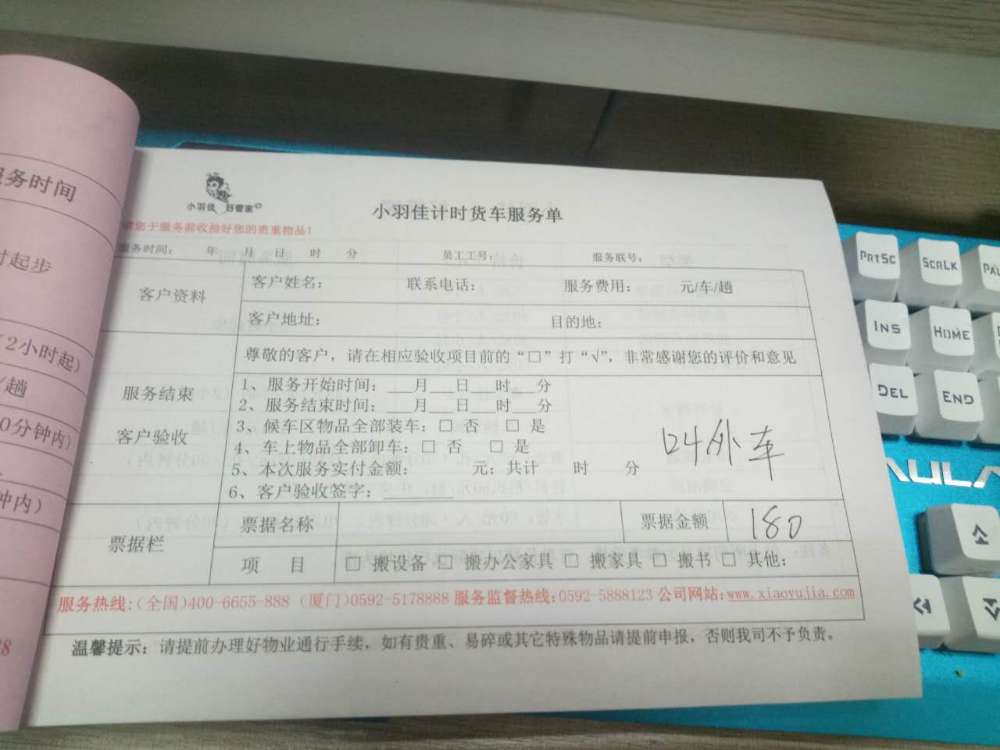 务时间
时起步
(2小时起)
/趟
0分钟内)
钟内)
小羽佳 好管家
小羽佳计时货车服务单
请您于服务前收拾好您的贵重物品!
服务时间: 年 月 日 时 分 员工工号: 服务联号:
客户资料
客户姓名: 联系电话: 服务费用: 元/车/趟
客户地址: 目的地:
尊敬的客户,请在相应验收项目前的“□”打“√”,非常感谢您的评价和意见
服务结束
客户验收
1、服务开始时间:___月___日___时___分
2、服务结束时间:___月___日___时___分
3、候车区物品全部装车:□ 否 □ 是
4、车上物品全部卸车:□ 否 □ 是
5、本次服务实付金额: 元;共计 时 分
6、客户验收签字:
外车
票据栏
票据名称 票据金额 180
项 目 □ 搬设备 □ 搬办公家具 □ 搬家具 □ 搬书 □ 其他:
服务热线:(全国)400-6655-888 (厦门)0592-5178888 服务监督热线:0592-5888123 公司网站:www.xiaoyujia.com
温馨提示:请提前办理好物业通行手续,如有贵重、易碎或其它特殊物品请提前申报,否则我司不予负责。
PrtSc ScrLk
Ins Home
Del End
AULA